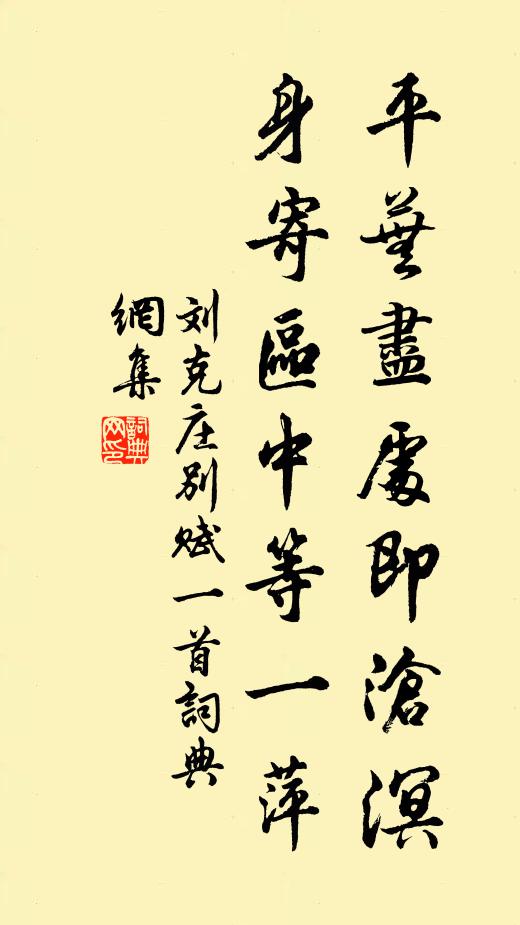 平蕪盡處即滄溟
身寄區中等一萍
刘克庄别赋一首詞典
網集
詞典網印